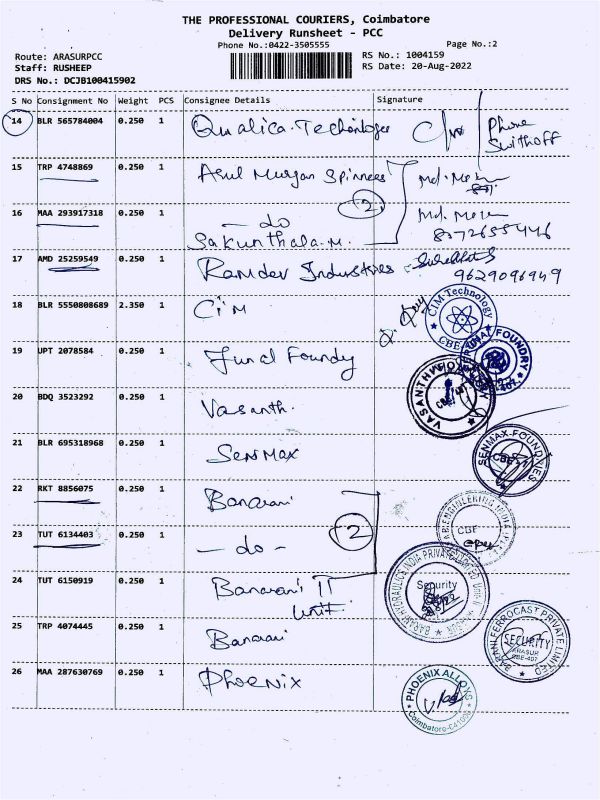 THE PROFESSIONAL COURIERS, Coimbatore
Delivery Runsheet - PCC
Phone No.:0422-3505555
Page No.:2
Route: ARASURPCC
RS No.: 1004159
Staff: RUSHEEP
RS Date: 20-Aug-2022
DRS No.: DCJB100415902
S No Consignment No Weight PCS Consignee Details Signature
14 BLR 565784004 0.250 1 Qualica Phone
15 TRP 4748869 0.250 1 Arul Murgan Spinners
16 MAA 293917318 0.250 1 - do 2
Sakunthala.M.
17 AMD 25259549 0.250 1 Ramdev Industries 9629096949
18 BLR 5550808689 2.350 1 CIM
CIM Technology CBE
19 UPT 2078584 0.250 1 Foundry
FOUNDRY
20 BDQ 3523292 0.250 1 Vasanth.
21 BLR 695318968 0.250 1 Senmax
SENMAX FOUNDRIES
22 RKT 8856075 0.250 1 Bannari
23 TUT 6134403 0.250 1 - do - 2
CBE
24 TUT 6150919 0.250 1 Bannari II
Unit
Security
25 TRP 4074445 0.250 1 Bannari
FERROCAST PRIVATE LIMITED SECURITY ARASUR
26 MAA 287630769 0.250 1 Phoenix
PHOENIX ALLOYS Coimbatore